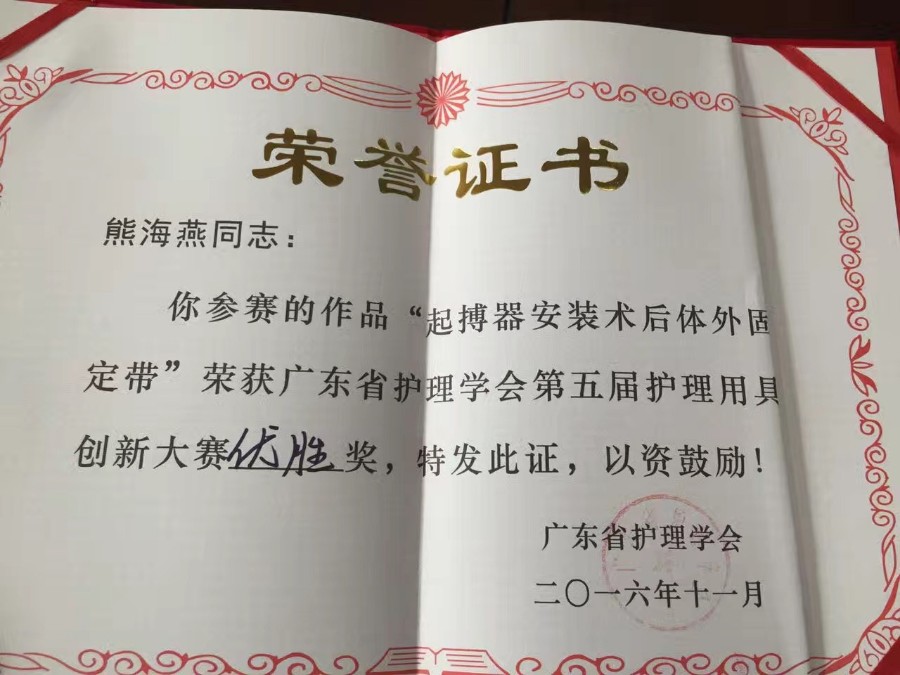 荣誉证书
熊海燕同志：
你参赛的作品“起搏器安装术后体外固
定带”荣获广东省护理学会第五届护理用具
创新大赛优胜奖，特发此证，以资鼓励！
广东省护理学会
二〇一六年十一月